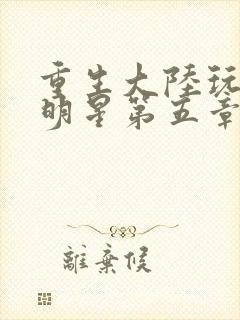 重生大陸玩
明星第五章
離棄候